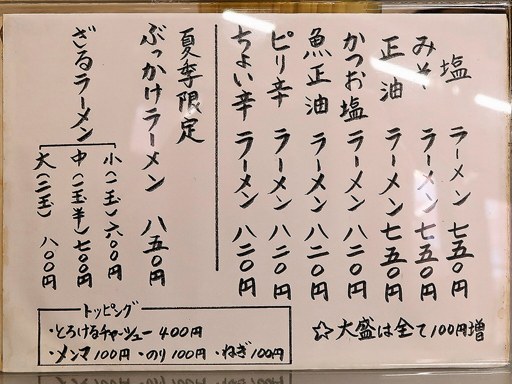 塩ラーメン 七五〇円
みそラーメン 七五〇円
正油ラーメン 七五〇円
かつお塩ラーメン 八二〇円
魚正油ラーメン 八二〇円
ピリ辛ラーメン 八二〇円
ちょい辛ラーメン 八二〇円
☆大盛は全て100円増
夏季限定
ぶっかけラーメン 八五〇円
ざるラーメン
小(一玉)六〇〇円
中(一玉半)七〇〇円
大(二玉)八〇〇円
トッピング
・とろけるチャーシュー 400円
・メンマ100円・のり100円・ねぎ100円